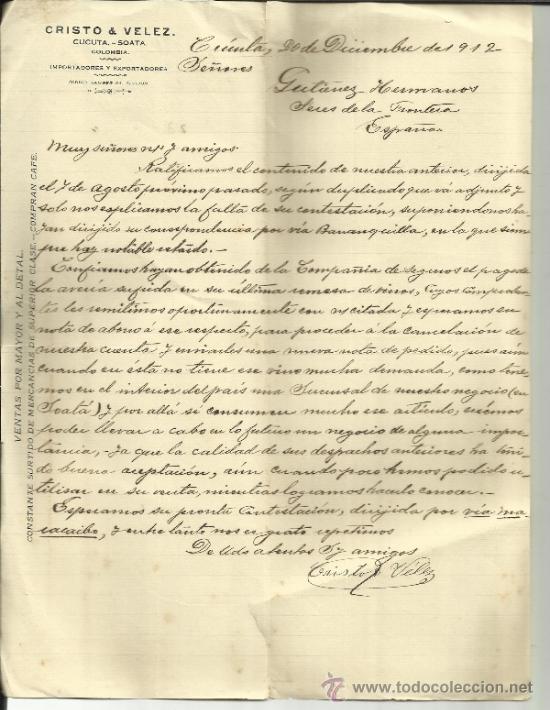 CRISTO & VELEZ.
CUCUTA.-SOATA
COLOMBIA.
IMPORTADORES Y EXPORTADORES
Cúcuta, 20 de Diciembre de 1912
Señores
Gutiérrez Hermanos
Jeres de la Frontera
España
Muy señores ns. y amigos
Ratificamos el contenido de nuestra anterior, dirijida
el 7 de Agosto próximo pasado, según duplicado que vá adjunto y
solo nos esplicamos la falta de su contestación, suponiendonos ha-
yan dirijido su correspondencia por via Barranquilla, en la que siem
pre hay notable retardo.-
Confiamos hayan obtenido de la Compañia de Seguros el pago de
la avería sufrida en su ultima remesa de vinos, cuyos comproban-
tes les remitimos oportunamente con ns citada y esperamos su
nota de abono á ese respecto, para proceder á la cancelación de
nuestra cuenta y enviarles una nueva nota de pedido, pues aún
cuando en ésta no tiene ese vino mucha demanda, como tene-
mos en el interior del país una Sucursal de nuestro negocio (en
Soatá) y por allá si consumen mucho ese articulo, creemos
poder llevar a cabo en lo futuro un negocio de alguna impor-
tancia, ya que la calidad de sus despachos anteriores ha teni-
do buena aceptación, aún cuando poco hemos podido u-
tilisar en su venta, mientras logramos hacerlo conocer.-
Esperamos su pronta contestación, dirijida por via ma-
racaibo, y entre tanto nos es grato repetirnos
De Uds atentos S.S. y amigos
Cristo y Vélez
VENTAS POR MAYOR Y AL DETAL.
CONSTANTE SURTIDO DE MERCANCIAS DE SUPERIOR CLASE.-COMPRAN CAFE.
todocoleccion
www.todocoleccion.net